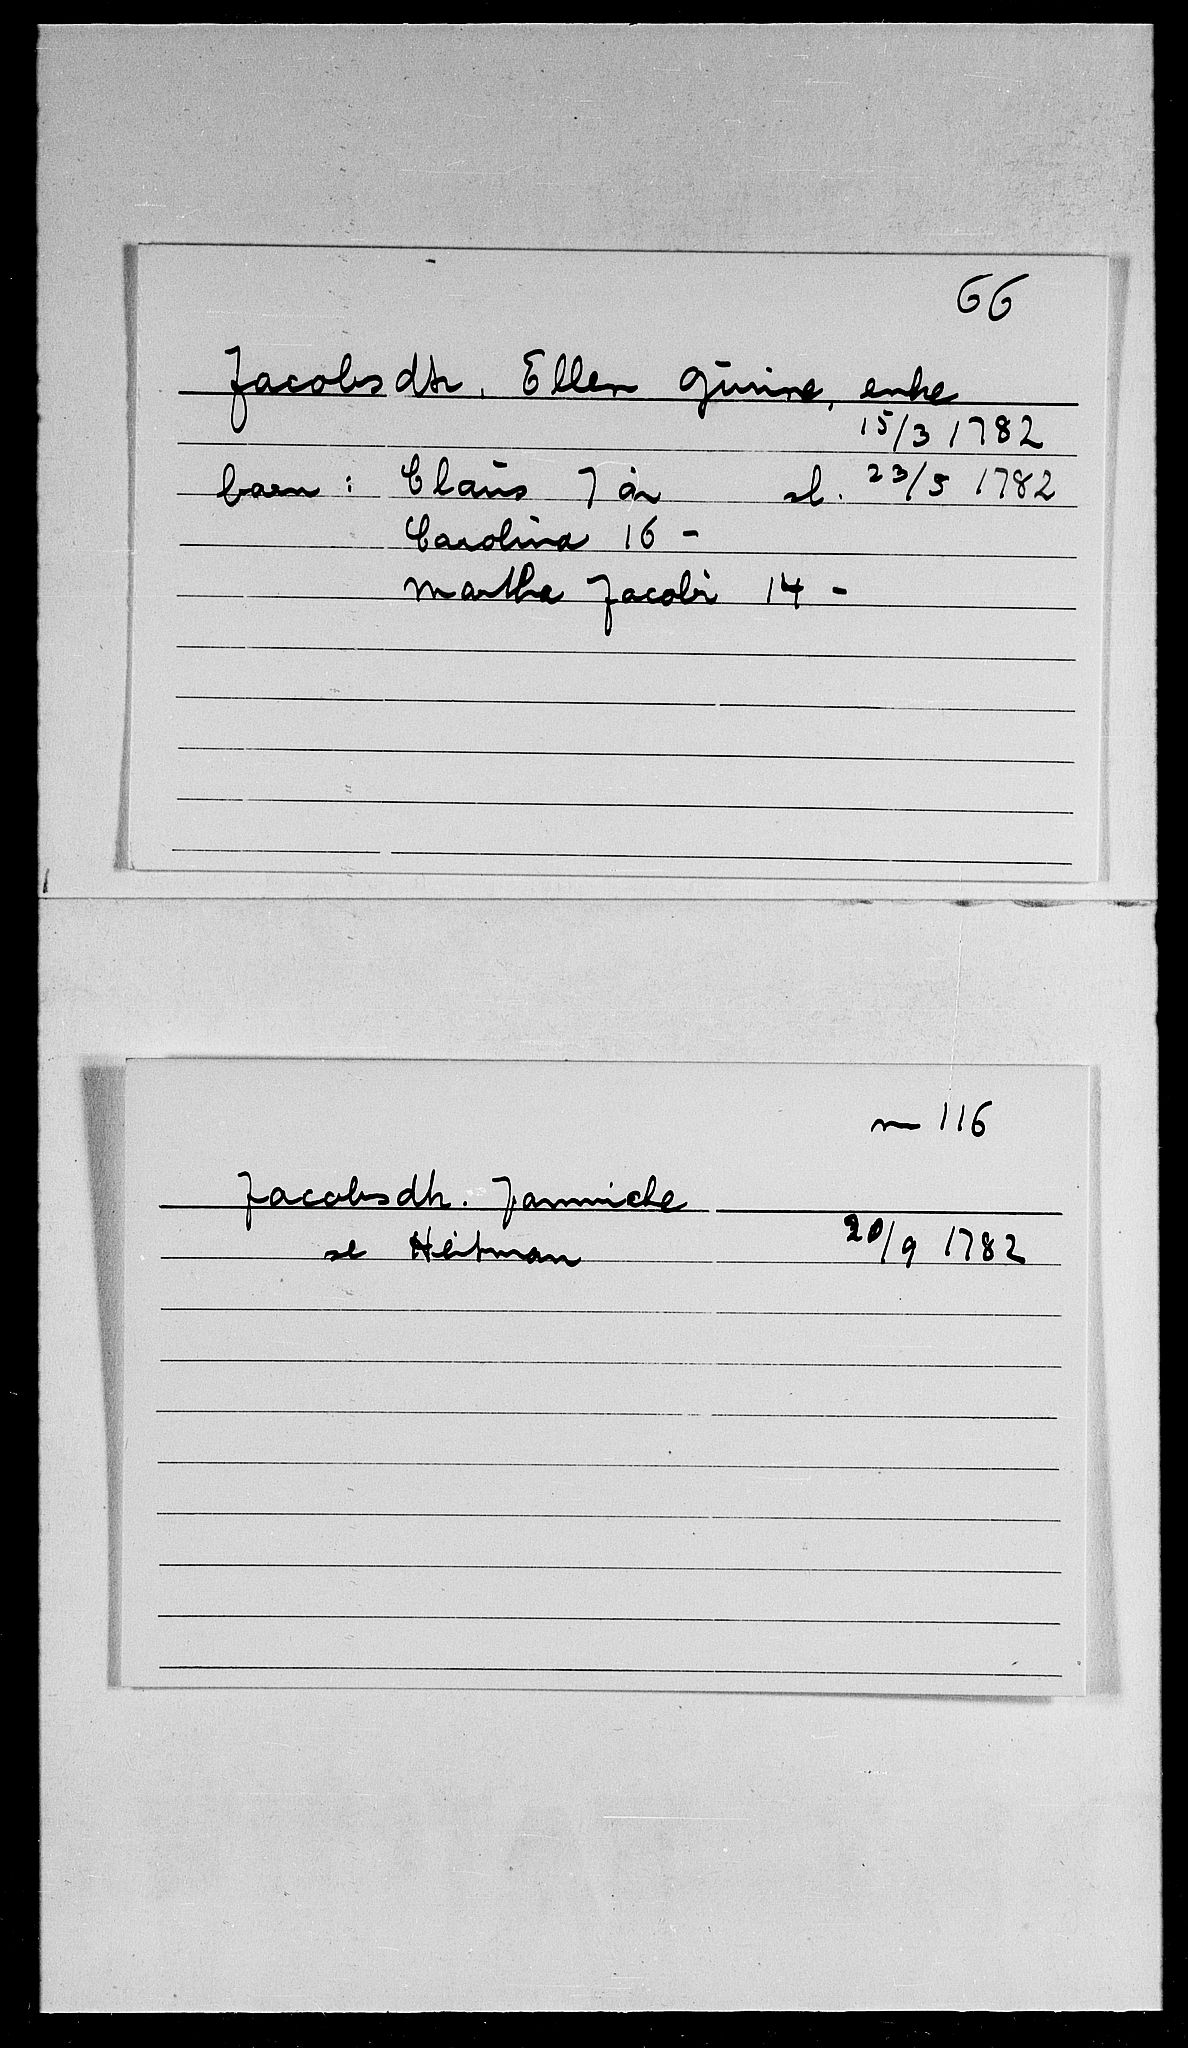 66
Jacobsdtr. Ellen Gurine, enke
15/3 1782
barn: Claus 7 år sl. 23/5 1782
Carolina 16 -
Martha Jacobi 14 -
m 116
Jacobsdtr. Jannicke
se Heitman 20/9 1782